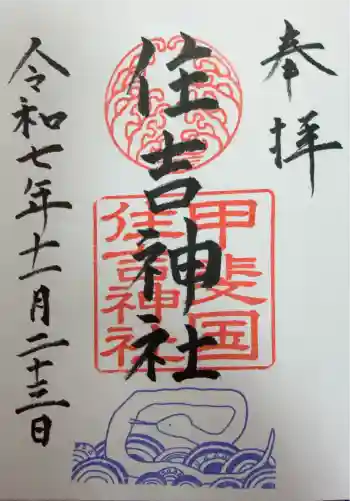 奉拝
住吉神社
甲斐国
住吉神社
令和七年十一月二十三日